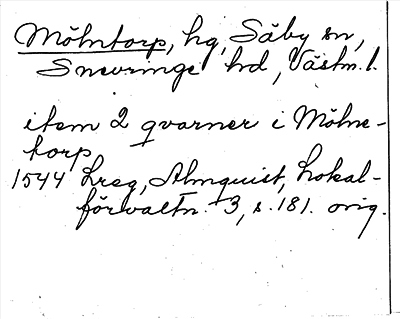 Mölntorp, hg, Säby sn,
Snevringe hd, Västm. l.
item 2 qvarner i Mölne-
torp
1544 Lreg, Almquist, Lokal-
förvaltn. 3, s. 181. orig.